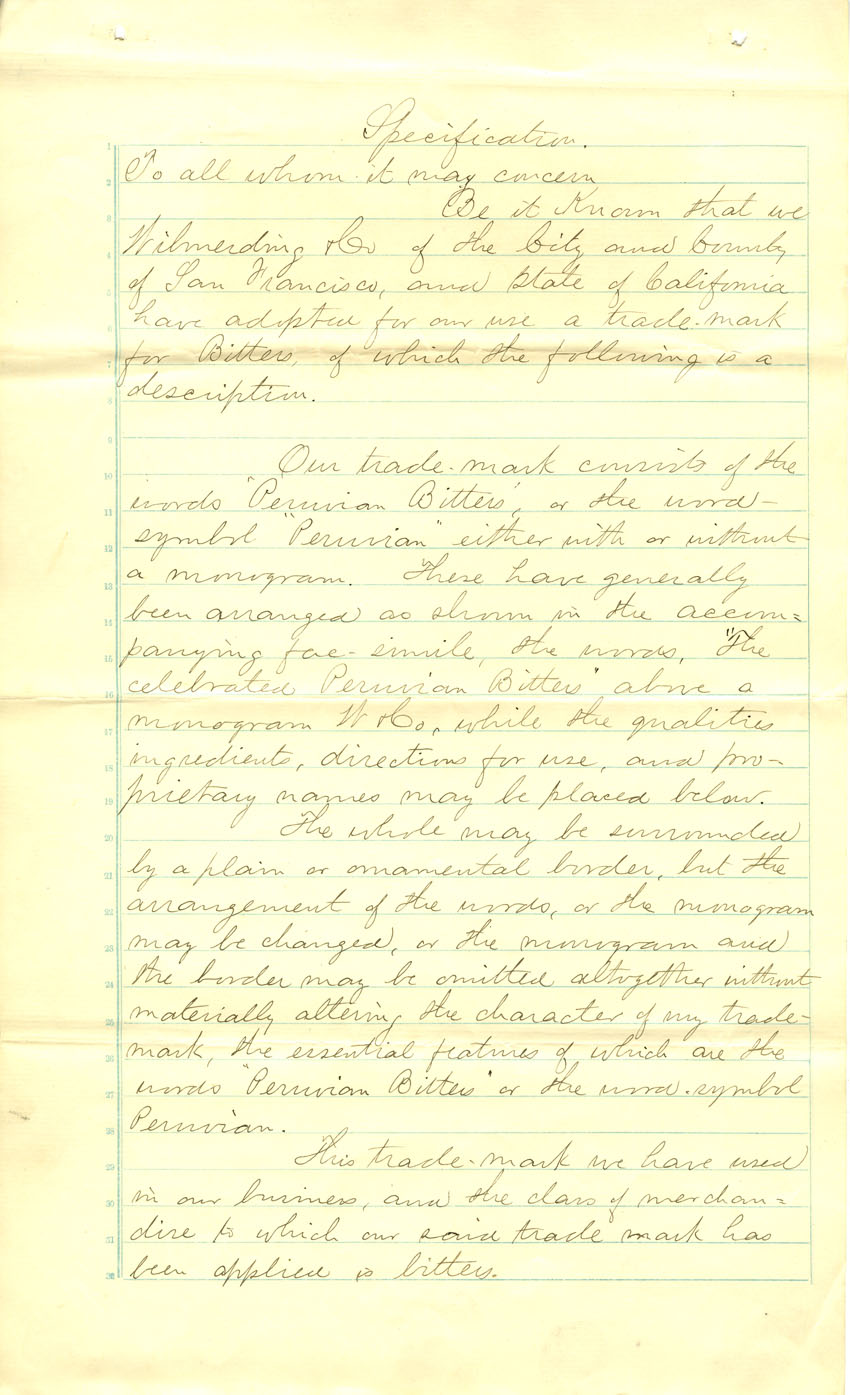 Specification.
1
2 To all whom it may concern
3 Be it Known that we
4 Wilmerding & Co of the City and County
5 of San Francisco, and state of California
6 have adopted for our use a trade-mark
7 for Bitters, of which the following is a
8 description.
9
10 Our trade-mark consists of the
11 words "Peruvian Bitters", or the word-
12 symbol "Peruvian" either with or without
13 a monogram. These have generally
14 been arranged as shown in the accom=
15 panying fac-simile, the words, "The
16 celebrated Peruvian Bitters" above a
17 monogram W & Co, while the qualities
18 ingredients, directions for use, and pro-
19 prietary names may be placed below.
20 The whole may be surrounded
21 by a plain or ornamental border, but the
22 arrangement of the words, or the monogram
23 may be changed, or the monogram and
24 the border may be omitted altogether without
25 materially altering the character of my trade-
26 mark, the essential features of which are the
27 words "Peruvian Bitters" or the word-symbol
28 Peruvian.
29 This trade-mark we have used
30 in our business, and the class of merchan=
31 dise to which our said trade mark has
32 been applied is bitters.